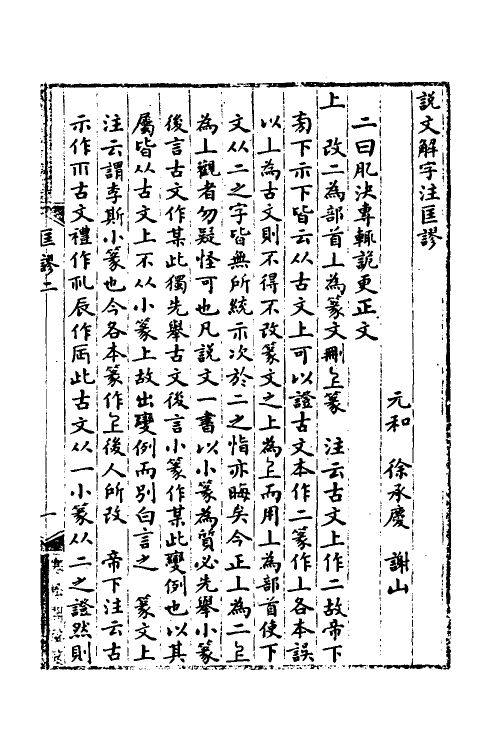 說文解字注匡謬
元和　徐承慶　謝山
二曰肊決專輒詭更正文
上　改二為部首丄為篆文刪𠄞篆　注云古文上作二故帝下
菊下示下皆云从古文上可以證古文本作二篆作丄各本誤
以丄為古文則不得不改篆文之上為𠄞而用丄為部首使下
文从二之字皆無所統示次於二之恉亦晦矣今正丄為二𠄞
為丄觀者勿疑怪可也凡說文一書以小篆為質必先舉小篆
後言古文作某此獨先舉古文後言小篆作某此變例也以其
屬皆从古文上不从小篆上故出變例而別白言之　篆文上
注云謂李斯小篆也今各本篆作𠄞後人所改　帝下注云古
示作𠀁古文禮作𠃞辰作𠨷此古文从一小篆从二之證然則
匡謬二
一